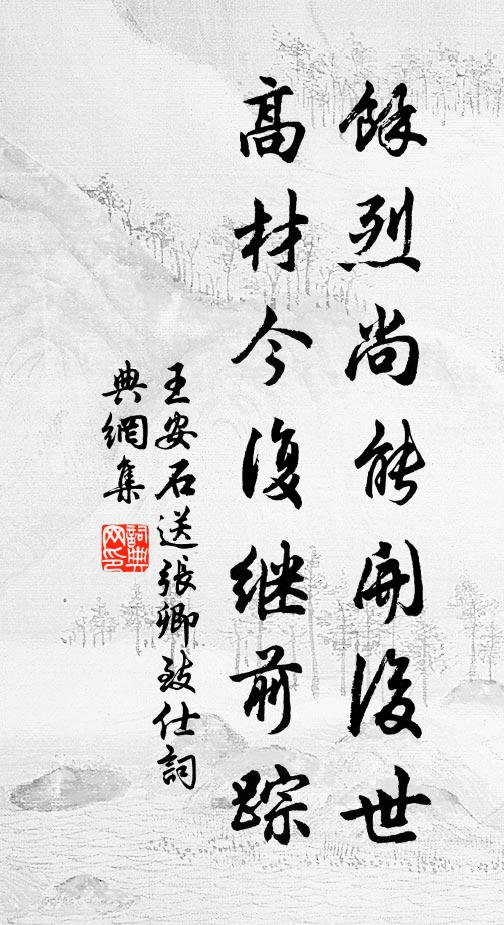 餘烈尚能開後世
高材今復继前踪
王安石送張卿致仕詞
典網集
詞典
网印